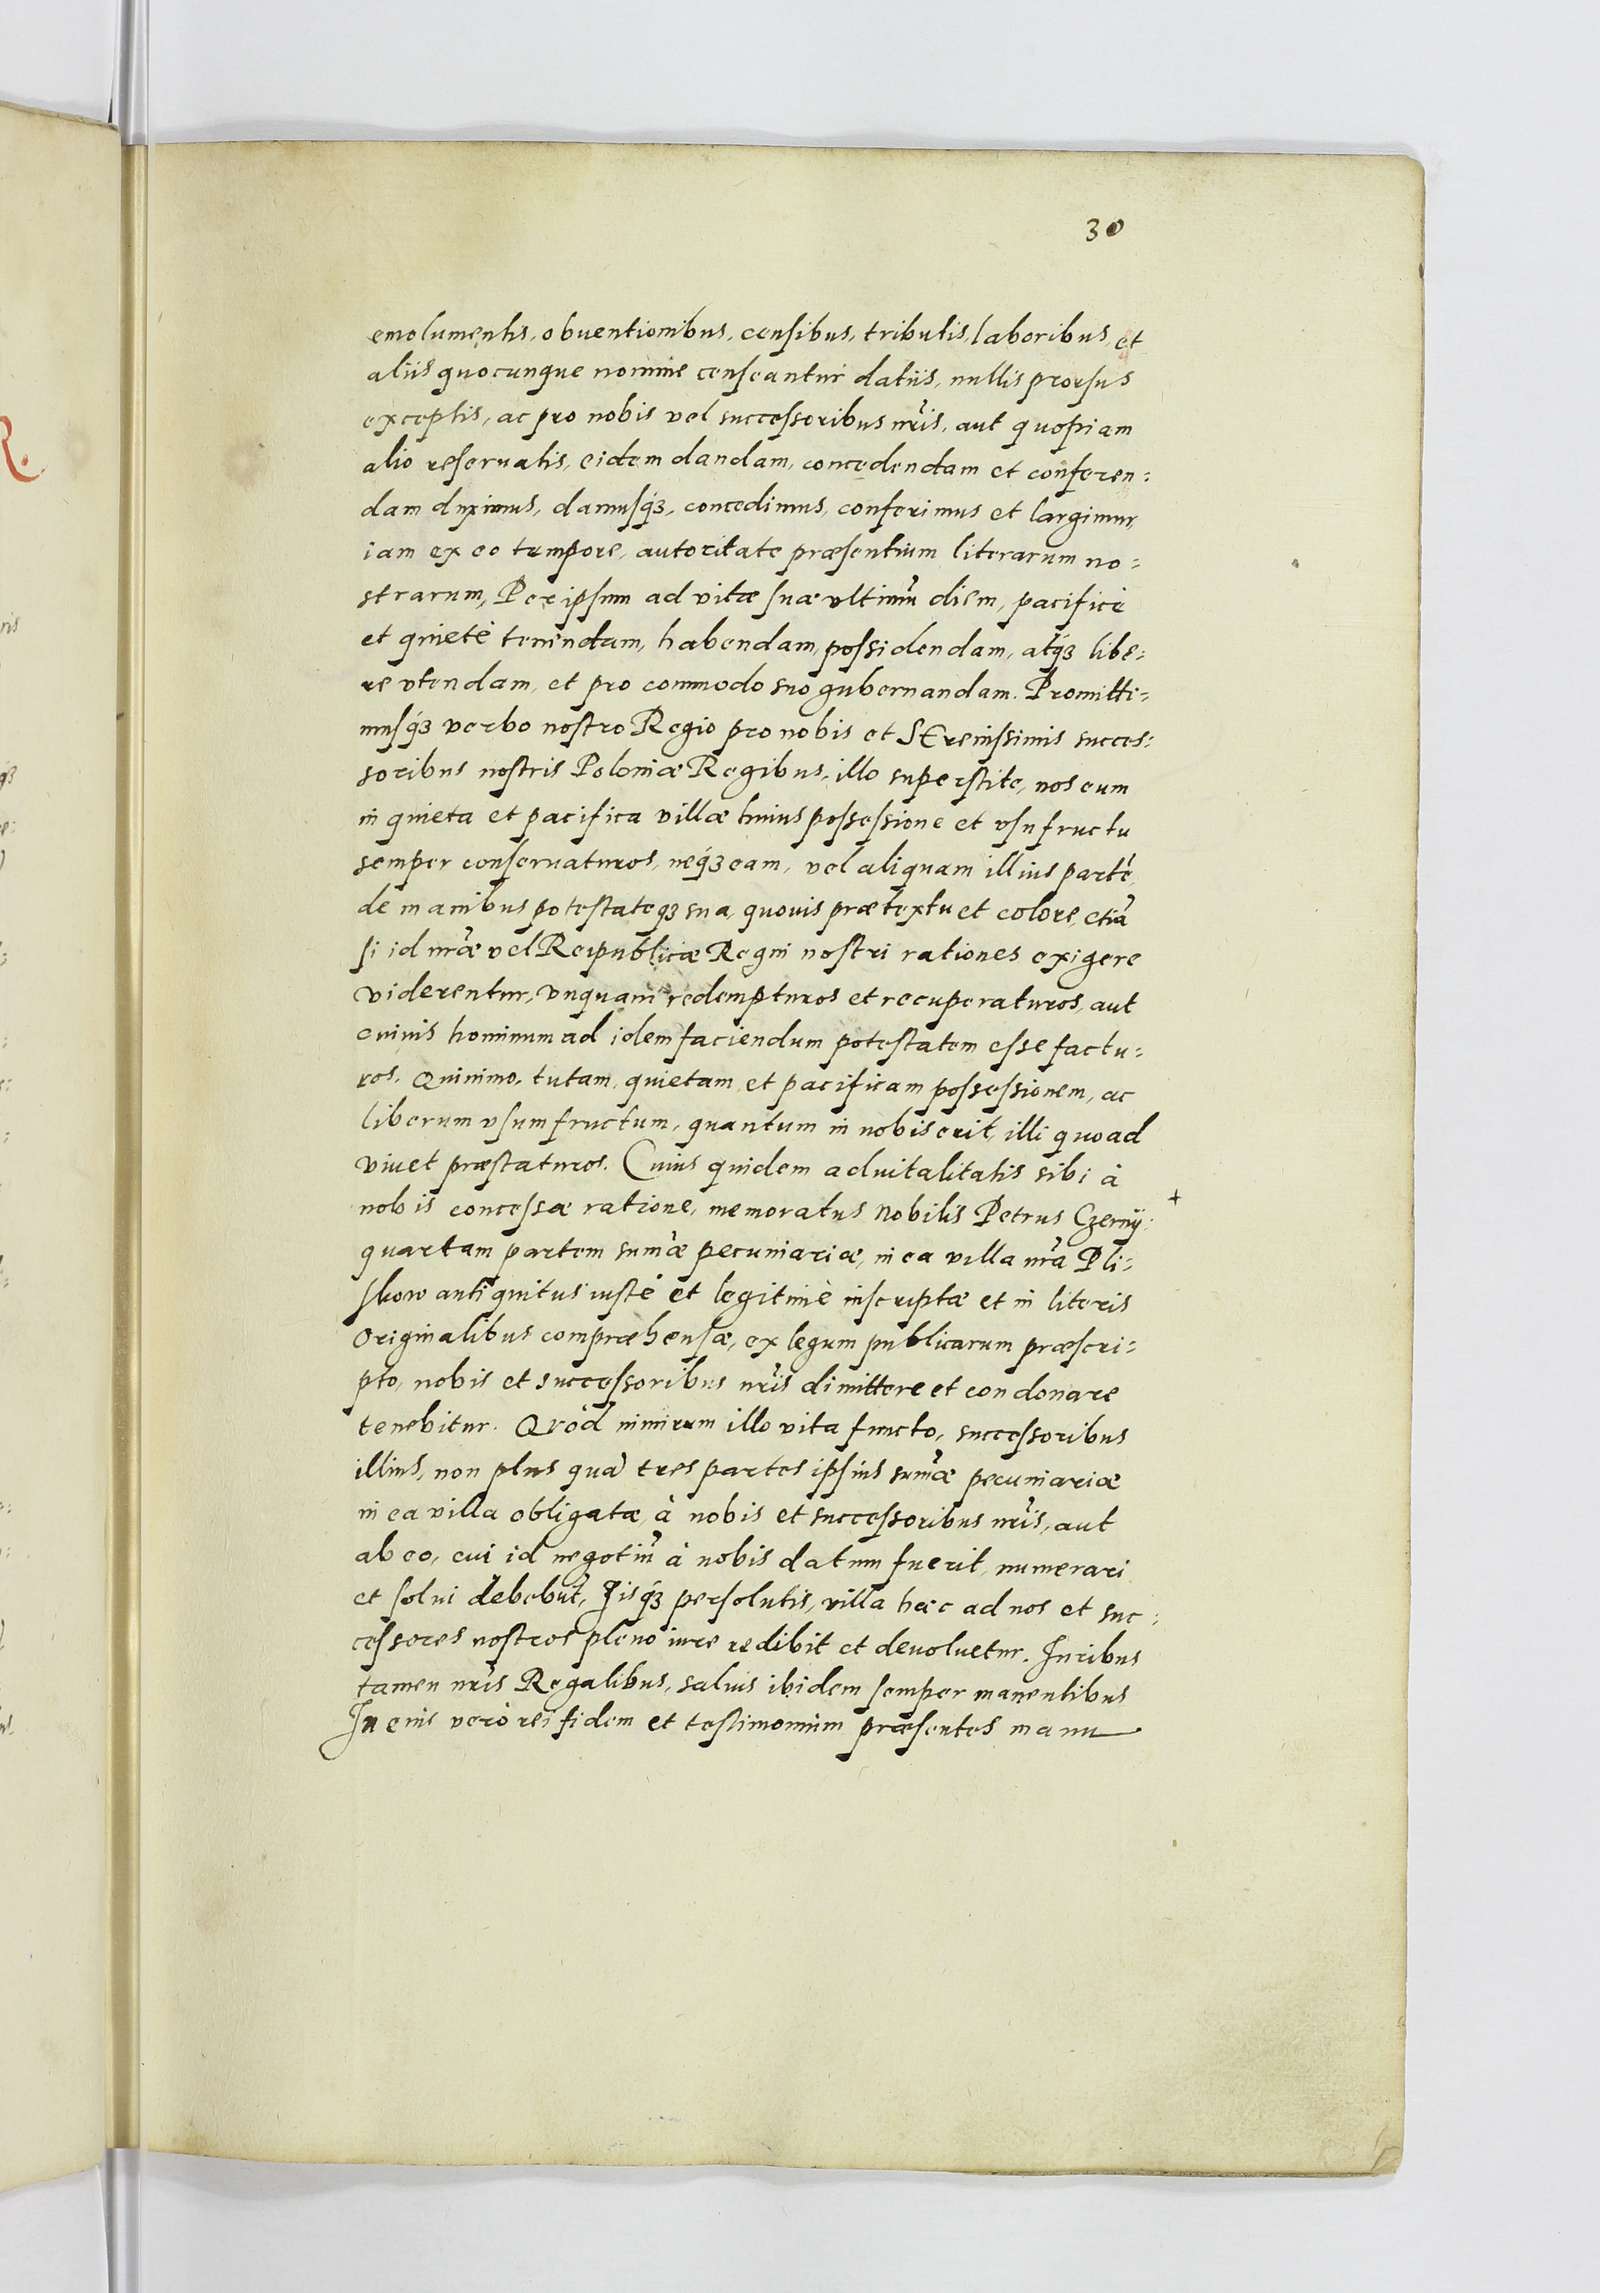 30
emolumentis, obuentionibus, censibus, tributis, laboribus, et
aliis quocunque nomine censeantur datiis, nullis prorsus
exceptis, ac pro nobis vel successoribus nr̃is, aut quopiam
alio reseruatis, eidem dandam, concedendam et conferen:
dam duximus, damusq́ꝫ, concedimus, conferimus et largimur,
iam ex eo tempore, autoritate præsentium literarum no:
strarum, Per ipsum ad vitæ suæ vltimũ diem, pacificè
et quietè tenendam, habendam, possidendam, atq́ꝫ libe:
re vtendam, et pro commodo suo gubernandam. Promitti:
musq́ꝫ verbo nostro Regio pro nobis et SErenissimis succes:
soribus nostris Poloniæ Regibus, illo superstite, nos eum
in quieta et pacifica villæ huius possessione et vsufructu
semper conseruaturos, neq́ꝫ eam, vel aliquam illius partẽ
de manibus potestateqꝫ sua, quouis prætextu et colore, etiã
si id nr̃æ vel Reipublicæ Regni nostri rationes exigere
viderentur, vnquam redempturos et recuperaturos, aut
cuiuis hominum ad idem faciendum potestatem esse factu:
ros. Quinimo, tutam, quietam et pacificam possessionem, ac
liberum vsumfructum, quantum in nobis erit, illi quoad
viuet præstaturos. Cuius quidem aduitalitatis sibi à
nobis concessæ ratione, memoratus Nobilis Petrus Czernÿ, +
quartam partem sum̃æ pecuniariæ, in ea villa nr̃a Pli:
skow antiquitus iustè et legitimè inscriptæ et in literis
originalibus compræhensæ, ex legum publicarum præscri:
pto, nobis et successoribus nr̃is dimittere et condonare
tenebitur. Quòd nimirum illo vita functo, successoribus
illius, non plus quã tres partes ipsius sum̃æ pecuniariæ
in ea villa obligatæ, à nobis et successoribus nr̃is, aut
ab eo, cui id negotiũ à nobis datum fuerit, numerari
et solui debebũt, Iisq́ꝫ persolutis, villa hæc ad nos et suc:
cessores nostros pleno iure redibit et deuoluetur. Iuribus
tamen nr̃is Regalibus, saluis ibidem semper manentibus
In cuius verò rei fidem et testimonium præsentes manu